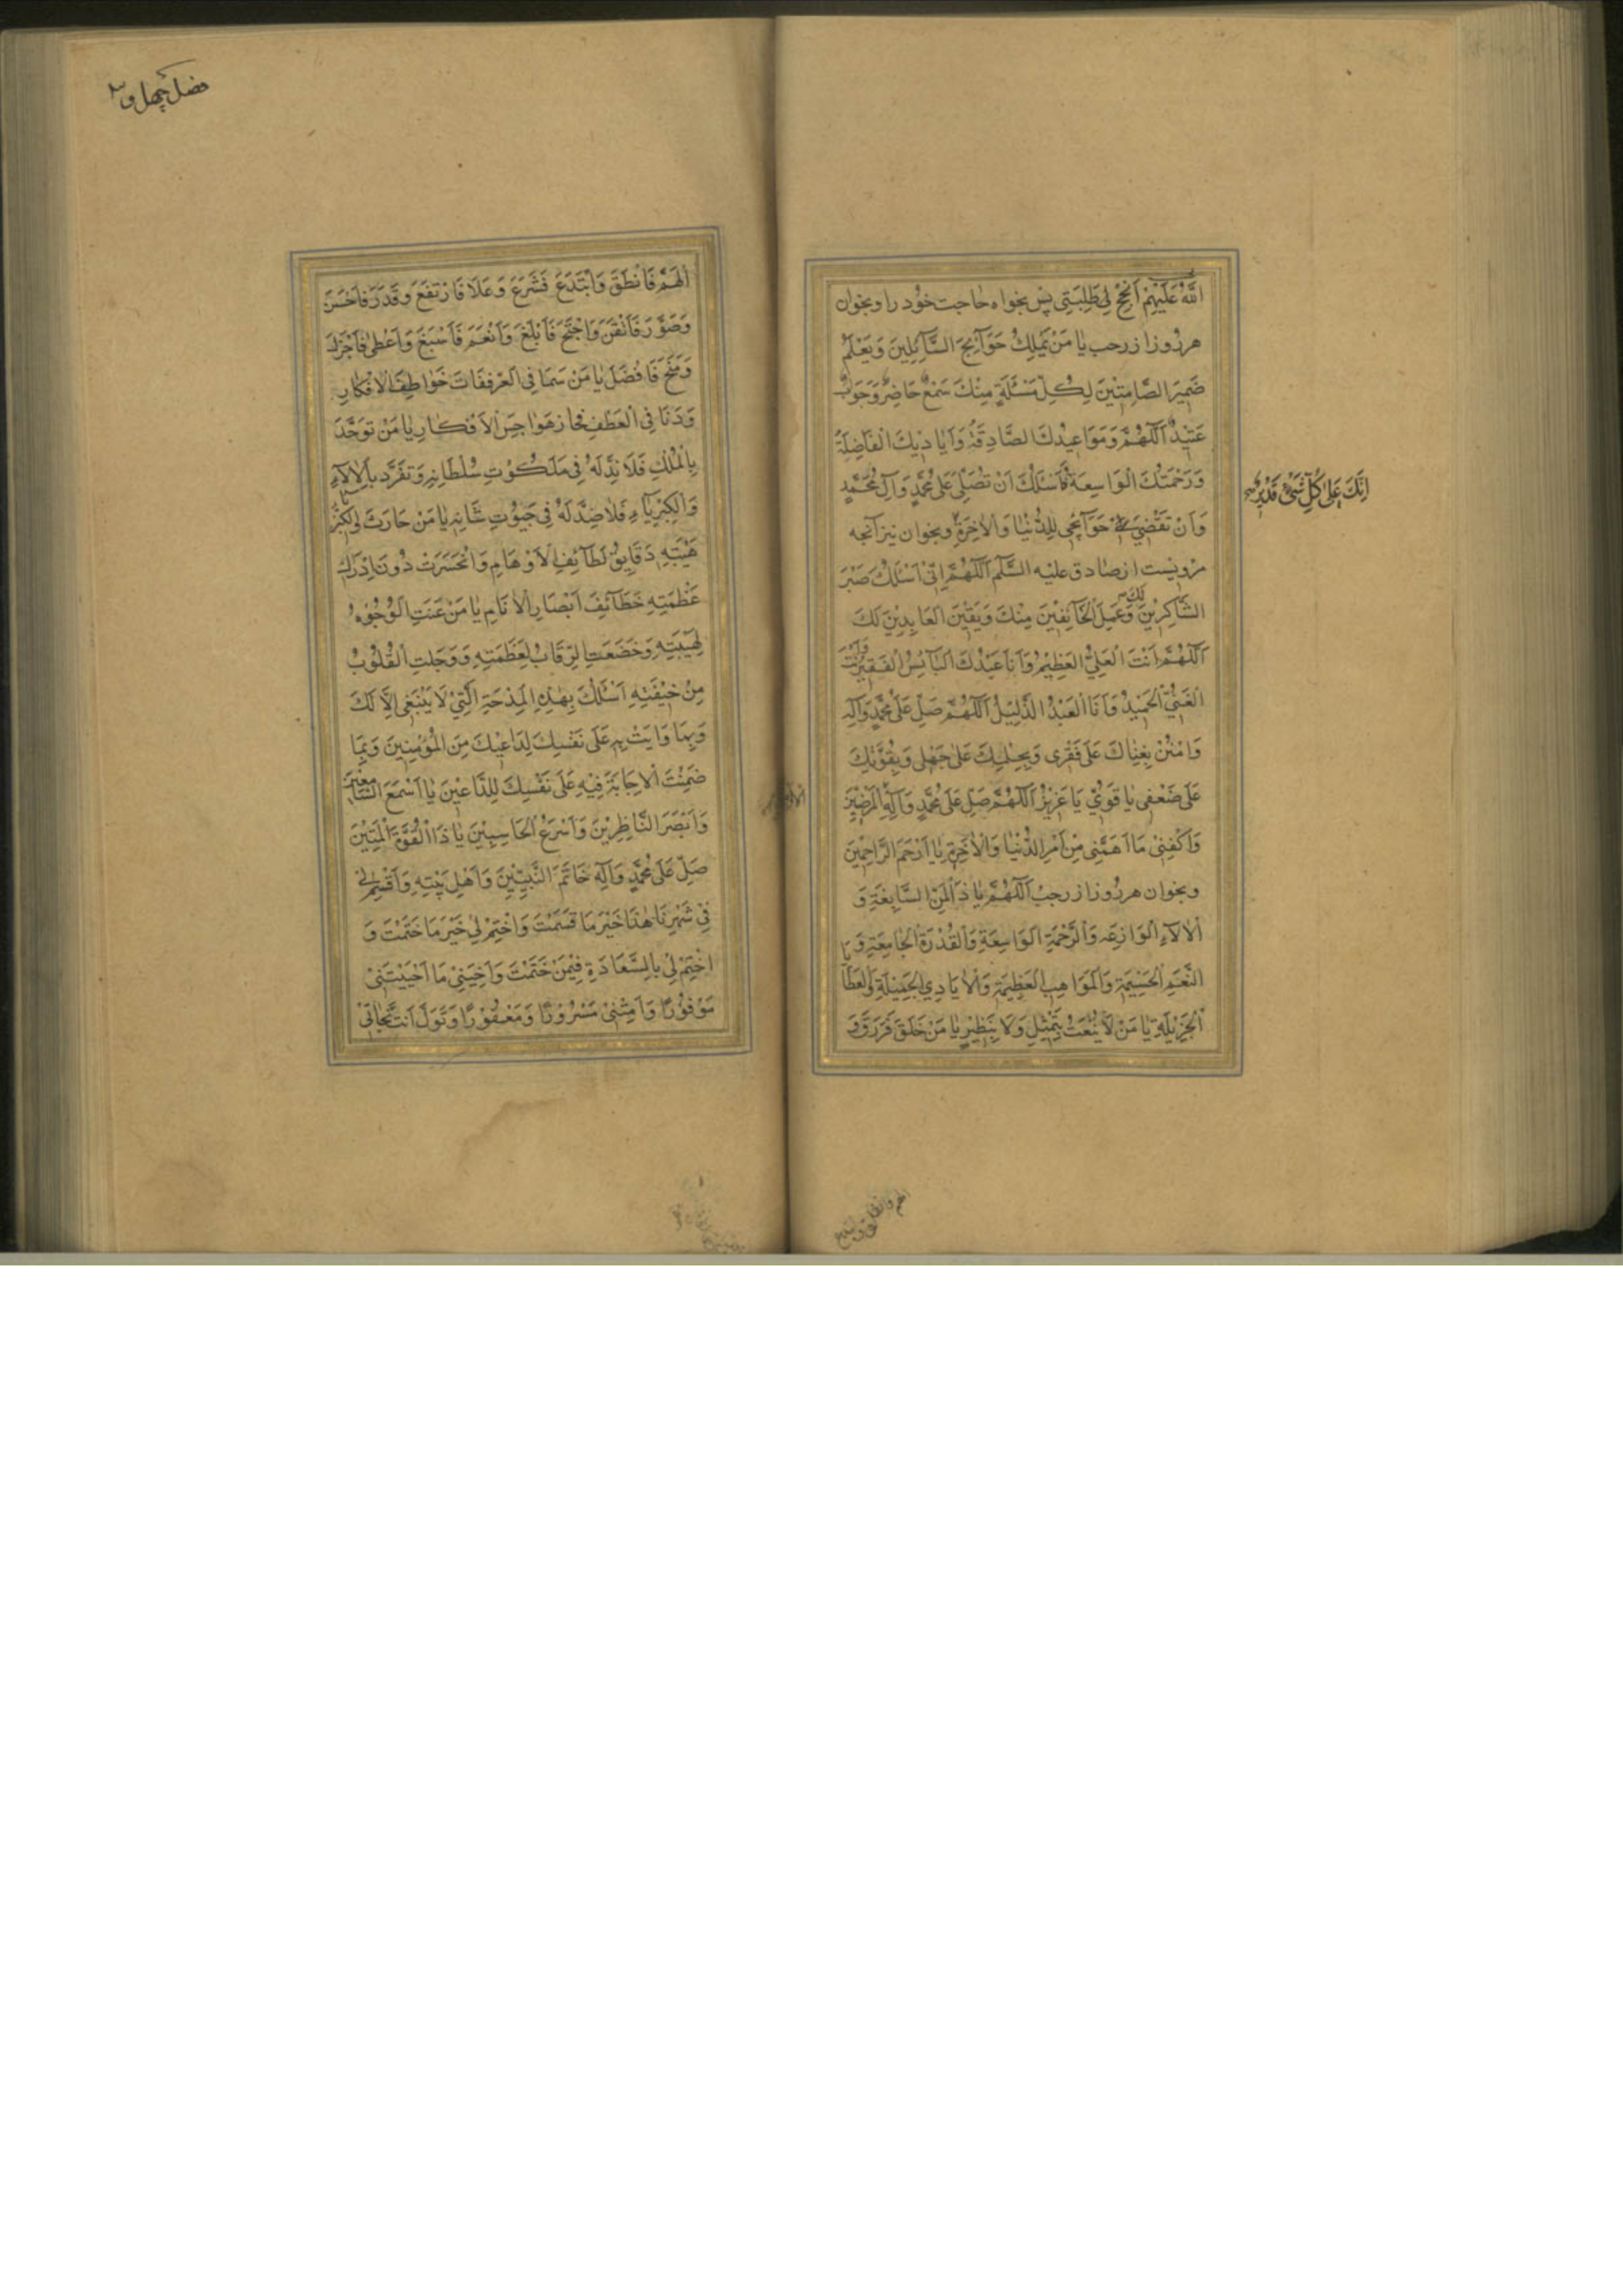 اللّٰهُ عَلَيْهِمْ اَنْجِحْ لِي طَلِبَتِي پس بخواه حاجت خود را و بخوان
هر روز از رجب يٰا مَنْ يَمْلِكُ حَوٰٓائِجَ السّٰٓائِلِينَ وَيَعْلَمُ
ضَمِيرَ الصّٰامِتِينَ لِكُلِّ مَسْئَلَةٍ مِنْكَ سَمْعٌ حٰاضِرٌ وَجَوٰابٌ
عَتِيدٌ اَللّٰهُمَّ وَمَوٰاعِيدُكَ الصّٰادِقَةُ وَاَيٰادِيكَ الْفٰاضِلَةُ
وَرَحْمَتُكَ الْوٰاسِعَةُ فَاَسْئَلُكَ اَنْ تُصَلِّيَ عَلٰى مُحَمَّدٍ وَآلِ مُحَمَّدٍ
وَاَنْ تَقْضِيَ حَوٰٓائِجِي لِلدُّنْيٰا وَالْاٰخِرَةِ و بخوان نيز آنچه
اِنَّكَ عَلٰى كُلِّ شَيْءٍ قَدِيرٌ
مرويست از صادق عليه السَّلٰم اَللّٰهُمَّ اِنِّي اَسْئَلُكَ صَبْرَ
الشّٰاكِرِينَ لَكَ وَعَمَلَ الْخٰٓائِفِينَ مِنْكَ وَيَقِينَ الْعٰابِدِينَ لَكَ
اَللّٰهُمَّ اَنْتَ الْعَلِيُّ الْعَظِيمُ وَاَنَا عَبْدُكَ الْبٰٓائِسُ الْفَقِيرُ وَاَنْتَ
الْغَنِيُّ الْحَمِيدُ وَاَنَا الْعَبْدُ الذَّلِيلُ اَللّٰهُمَّ صَلِّ عَلٰى مُحَمَّدٍ وَآلِهِ
وَامْنُنْ بِغِنٰاكَ عَلٰى فَقْرِي وَبِحِلْمِكَ عَلٰى جَهْلِي وَبِقُوَّتِكَ
عَلٰى ضَعْفِي يٰا قَوِيُّ يٰا عَزِيزُ اَللّٰهُمَّ صَلِّ عَلٰى مُحَمَّدٍ وَآلِهِ الْمَرْضِيِّينَ
وَاكْفِنِي مٰا اَهَمَّنِي مِنْ اَمْرِ الدُّنْيٰا وَالْاٰخِرَةِ يٰا اَرْحَمَ الرّٰاحِمِينَ
و بخوان هر روز از رجب اَللّٰهُمَّ يٰا ذَا الْمِنَنِ السّٰابِغَةِ وَ
الْاٰلٰٓاءِ الْوٰازِعَه وَالرَّحْمَةِ الْوٰاسِعَةِ وَالْقُدْرَةِ الْجٰامِعَةِ وَ
النِّعَمِ الْجَسِيمَةِ وَالْمَوٰاهِبِ الْعَظِيمَةِ وَالْاَيٰادِي الْجَمِيلَةِ وَالْعَطٰايٰا
الْجَزِيلَةِ يٰا مَنْ لٰا يُنْعَتُ بِتَمْثِيلٍ وَلٰا بِنَظِيرٍ يٰا مَنْ خَلَقَ فَرَزَقَ وَ
فصل چهل و
اَلْهَمَ فَاَنْطَقَ وَابْتَدَعَ فَشَرَعَ وَعَلٰا فَارْتَفَعَ وَقَدَّرَ فَاَحْسَنَ
وَصَوَّرَ فَاَتْقَنَ وَاحْتَجَّ فَاَبْلَغَ وَاَنْعَمَ فَاَسْبَغَ وَاَعْطٰى فَاَجْزَلَ
وَمَنَحَ فَاَفْضَلَ يٰا مَنْ سَمٰا فِي الْعِزِّ فَفٰاتَ خَوٰاطِفَ الْاَفْكٰارِ
وَدَنٰا فِي الْعَطْفِ فَجٰازَ هَوٰاجِسَ الْاَفْكٰارِ يٰا مَنْ تَوَحَّدَ
بِالْمُلْكِ فَلٰا نِدَّ لَهُ فِي مَلَكُوتِ سُلْطٰانِهِ وَتَفَرَّدَ بِالْاٰلٰٓاءِ
وَالْكِبْرِيٰٓاءِ فَلٰا ضِدَّ لَهُ فِي جَبَرُوتِ شَانِهِ يٰا مَنْ حٰارَتْ فِي كِبْرِيٰاءِ
هَيْبَتِهِ دَقٰايِقُ لَطٰٓائِفِ الْاَوْهٰامِ وَانْحَسَرَتْ دُونَ اِدْرٰاكِ
عَظَمَتِهِ خَطٰٓائِفُ اَبْصٰارِ الْاَنٰامِ يٰا مَنْ عَنَتِ الْوُجُوهُ
لِهَيْبَتِهِ وَخَضَعَتِ الرِّقٰابُ لِعَظَمَتِهِ وَوَجِلَتِ الْقُلُوبُ
مِنْ خِيفَتِهِ اَسْئَلُكَ بِهٰذِهِ الْمِدْحَةِ الَّتِي لٰا يَنْبَغِي اِلّٰا لَكَ
وَبِمٰا وَاَيْتَ بِهِ عَلٰى نَفْسِكَ لِدٰاعِيكَ مِنَ الْمُؤْمِنِينَ وَبِمٰا
ضَمِنْتَ الْاِجٰابَةَ فِيهِ عَلٰى نَفْسِكَ لِلدّٰاعِينَ يٰا اَسْمَعَ السّٰامِعِينَ
وَاَبْصَرَ النّٰاظِرِينَ وَاَسْرَعَ الْحٰاسِبِينَ يٰا ذَا الْقُوَّةِ الْمَتِينَ
صَلِّ عَلٰى مُحَمَّدٍ وَآلِهِ خٰاتَمِ النَّبِيِّينَ وَاَهْلِ بَيْتِهِ وَاَقْسِمْ لِي
فِي شَهْرِنٰا هٰذٰا خَيْرَ مٰا قَسَمْتَ وَاخْتِمْ لِي خَيْرَ مٰا خَتَمْتَ وَ
اخْتِمْ لِي بِالسَّعٰادَةِ فِيمَنْ خَتَمْتَ وَاَحْيِنِي مٰا اَحْيَيْتَنِي
مَوْفُورًا وَاَمِتْنِي مَسْرُورًا وَمَغْفُورًا وَتَوَلَّ اَنْتَ نَجٰاتِي